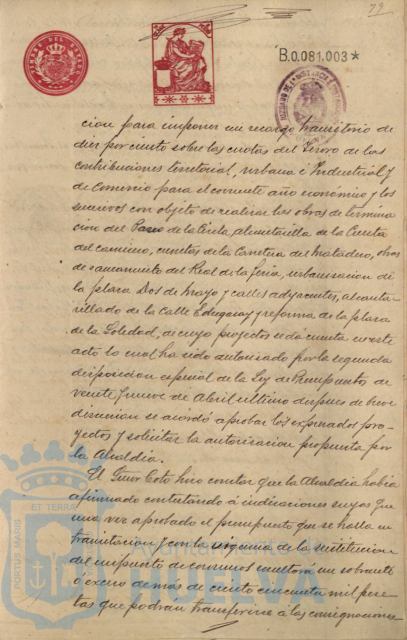 79
TIMBRE DEL ESTADO
B.0.081.003*
cion para imponer un recargo transitorio de
diez por ciento sobre las cuotas del Tesoro de las
contribuciones territorial, urbana é Industrial y
de Comercio para el corriente año económico y los
sucesivos con objeto de realizar las obras de termina
cion del Paseo de la Cinta, alcantarilla de la Cuesta
del camino, cunetas de la Carretera del Matadero, obras
de saneamiento del Real de la feria, urbanizacion de
la plaza Dos de Mayo y calles adyacentes, alcanta-
rillado de la Calle y reforma de la plaza
de la Soledad, de cuyo proyectos se dá cuenta en este
acto lo cual ha sido autorizado por la segunda
disposicion especial de la Ley de Presupuestos de
veinte y nueve de Abril ultimo despues de breve
discusion se acordó aprobar los expresados pro-
yectos y solicitar la autorizacion propuesta por
la Alcaldia.
El Señor Coto hizo constar que la Alcaldia habia
afirmado contestando á indicaciones suyas que
una vez aprobado el presupuesto que se halla en
tramitacion y con la vigencia de la sustitucion
del impuesto de consumos resultará un sobrante
ó exceso de más de ciento cincuenta mil pese-
tas que podran transferirse á las consignaciones
ET TERRA
PORTUS MARIS
Ayuntamiento de
HUELVA